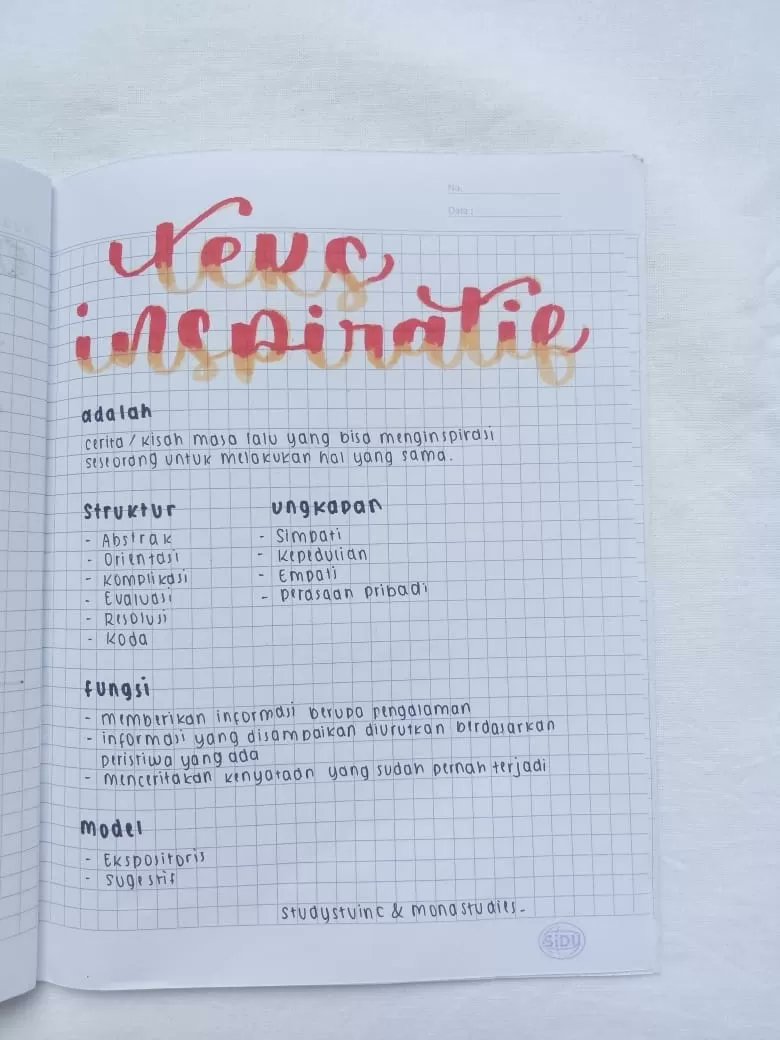 No.
Date :
Teks
inspiratif
adalah
cerita / kisah masa lalu yang bisa menginspirasi
seseorang untuk melakukan hal yang sama.
Struktur
- Abstrak
- Orientasi
- Komplikasi
- Evaluasi
- Resolusi
- Koda
ungkapan
- Simpati
- Kepedulian
- Empati
- perasaan pribadi
fungsi
- memberikan informasi berupa pengalaman
- informasi yang disampaikan diurutkan berdasarkan
peristiwa yang ada
- menceritakan kenyataan yang sudah pernah terjadi
model
- Ekspositoris
- sugestif
studystuinc & monastudies.
SiDU